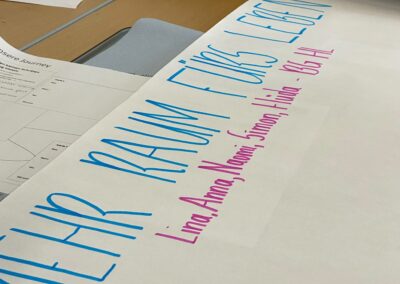 MEHR RAUM FÜRS LEBEN
Lina, Anna, Naomi, Simon, Hilda - BG HL
Journey